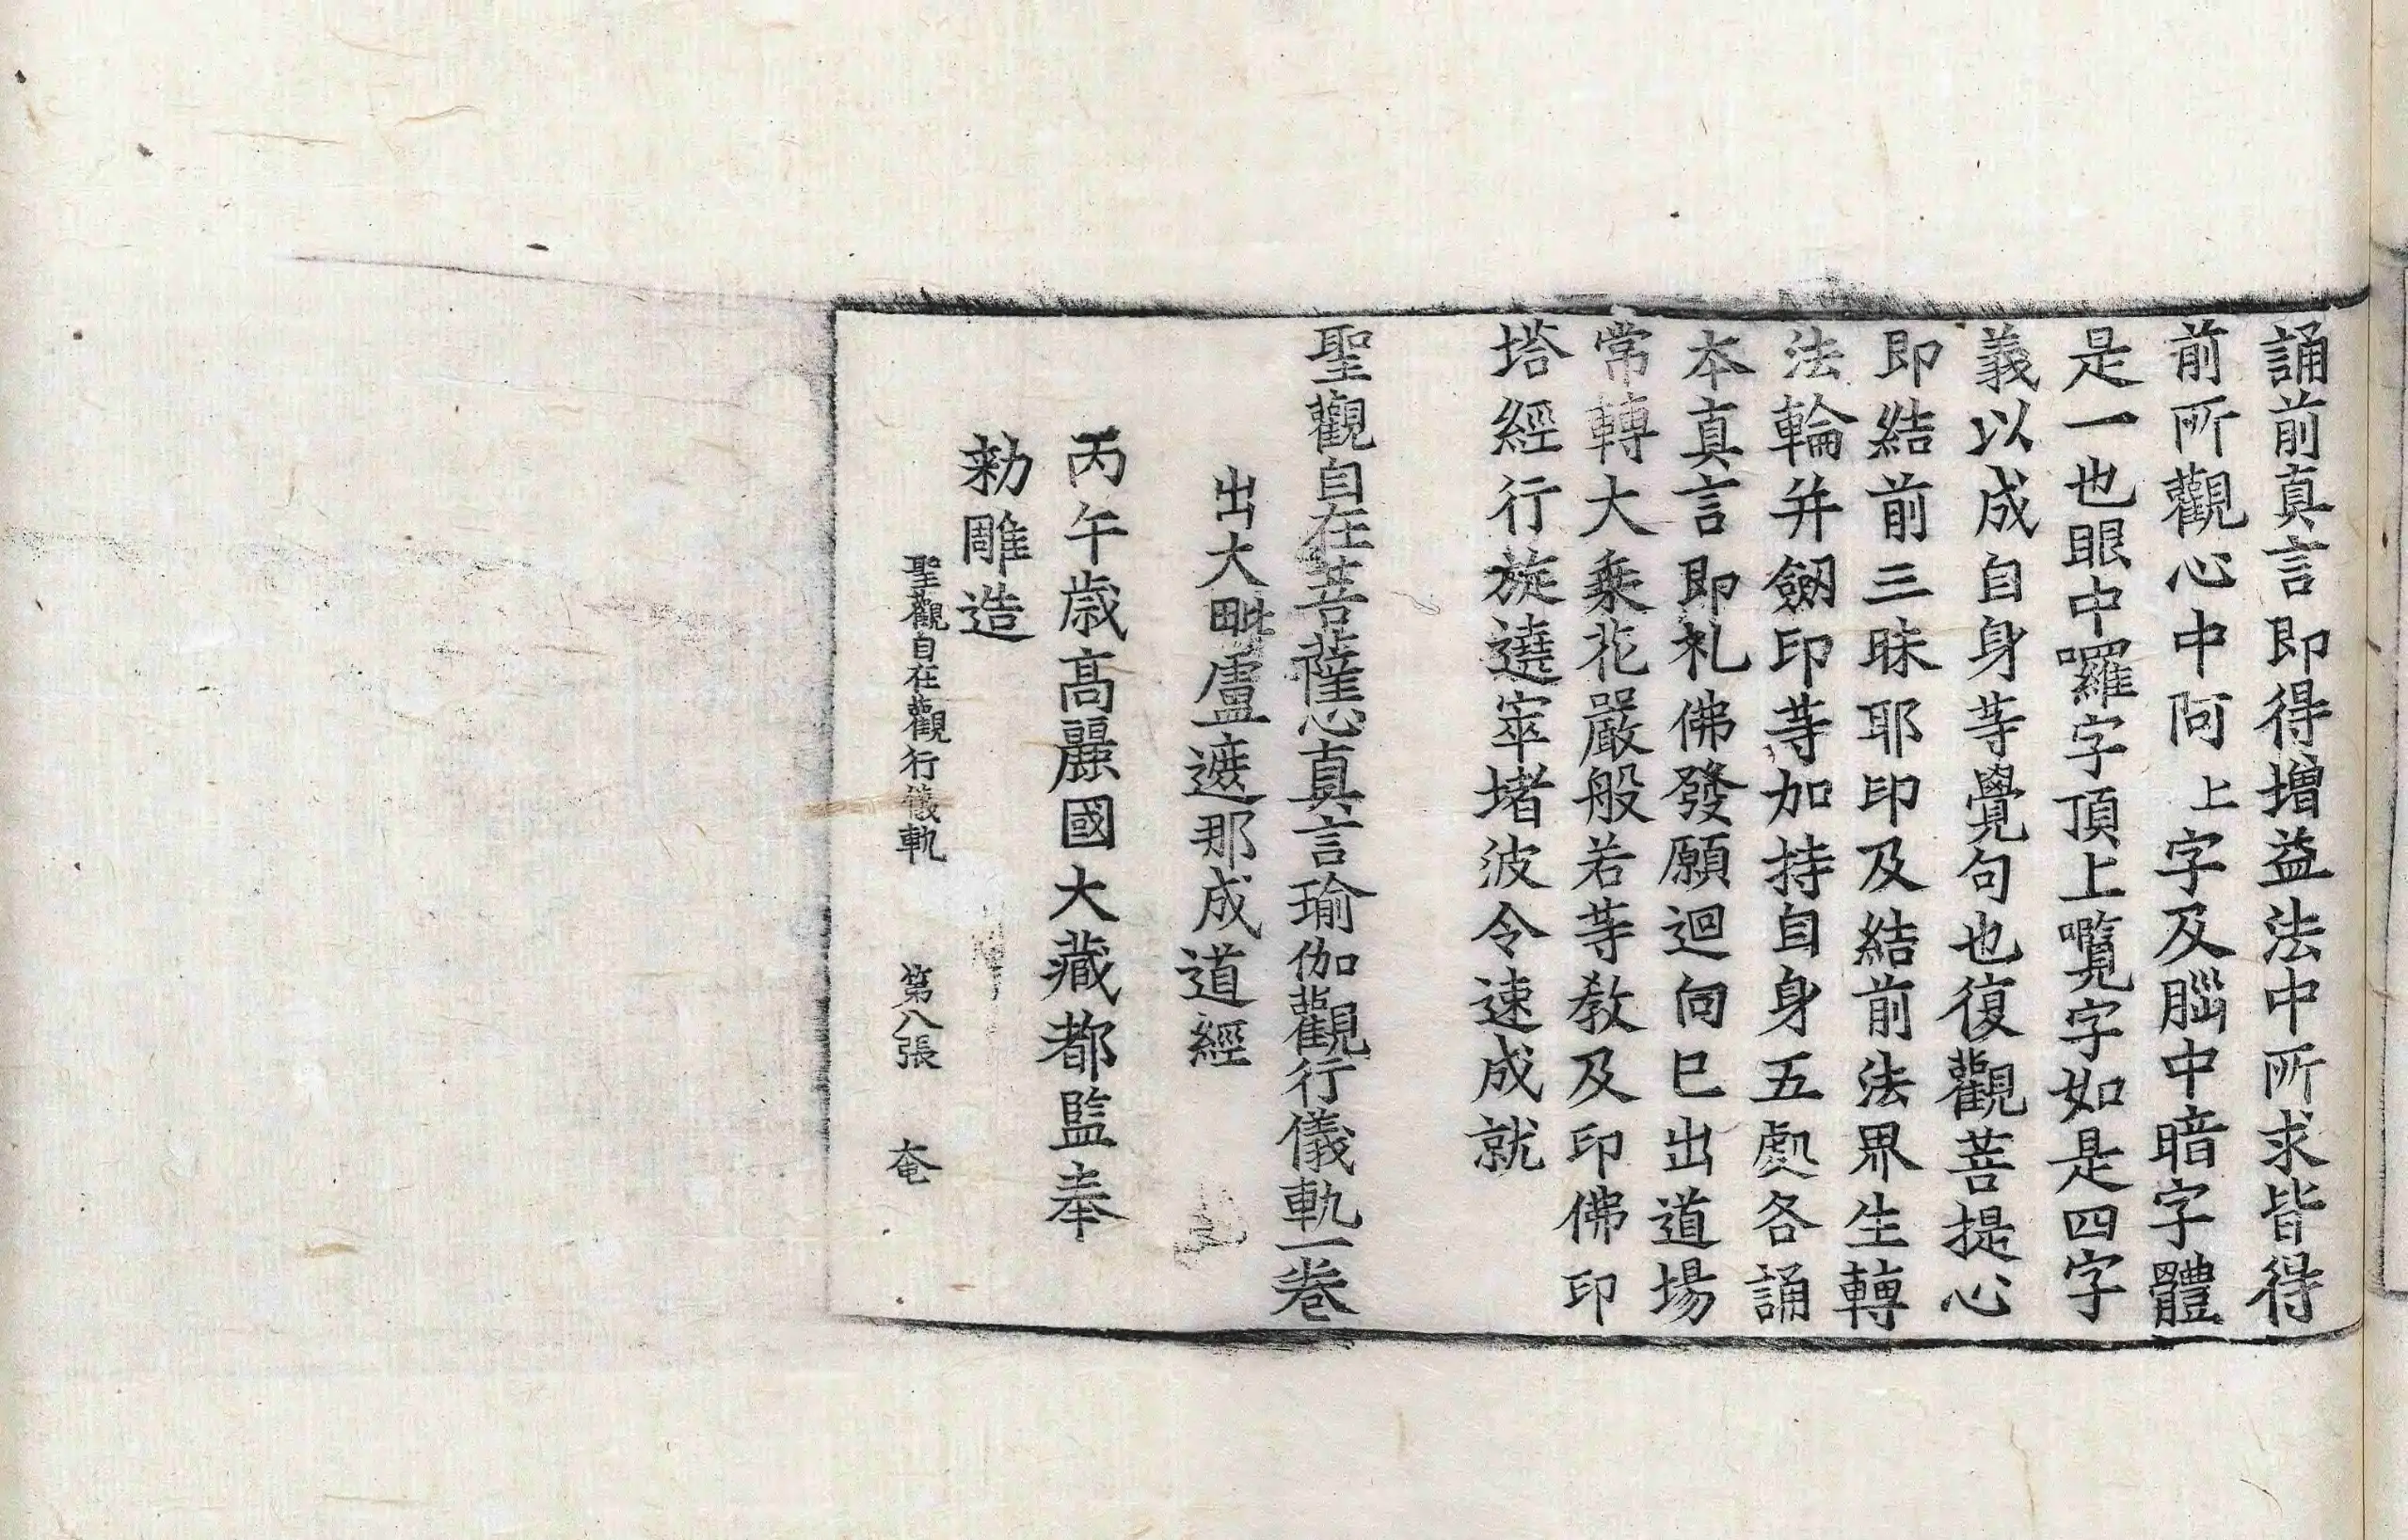 誦前真言即得增益法中所求皆得
前所觀心中阿上字及腦中暗字體
是一也眼中囉字頂上囕字如是四字
義以成自身等覺句也復觀菩提心
即結前三昧耶印及結前法界生轉
法輪并劒印等加持自身五處各誦
本真言即礼佛發願迴向已出道場
常轉大乘花嚴般若等教及印佛印
塔經行旋遶窣堵波令速成就
聖觀自在菩薩心真言瑜伽觀行儀軌一卷
出大毗盧遮那成道經
丙午歲高麗國大藏都監奉
勑雕造
聖觀自在觀行儀軌 第八張 奄